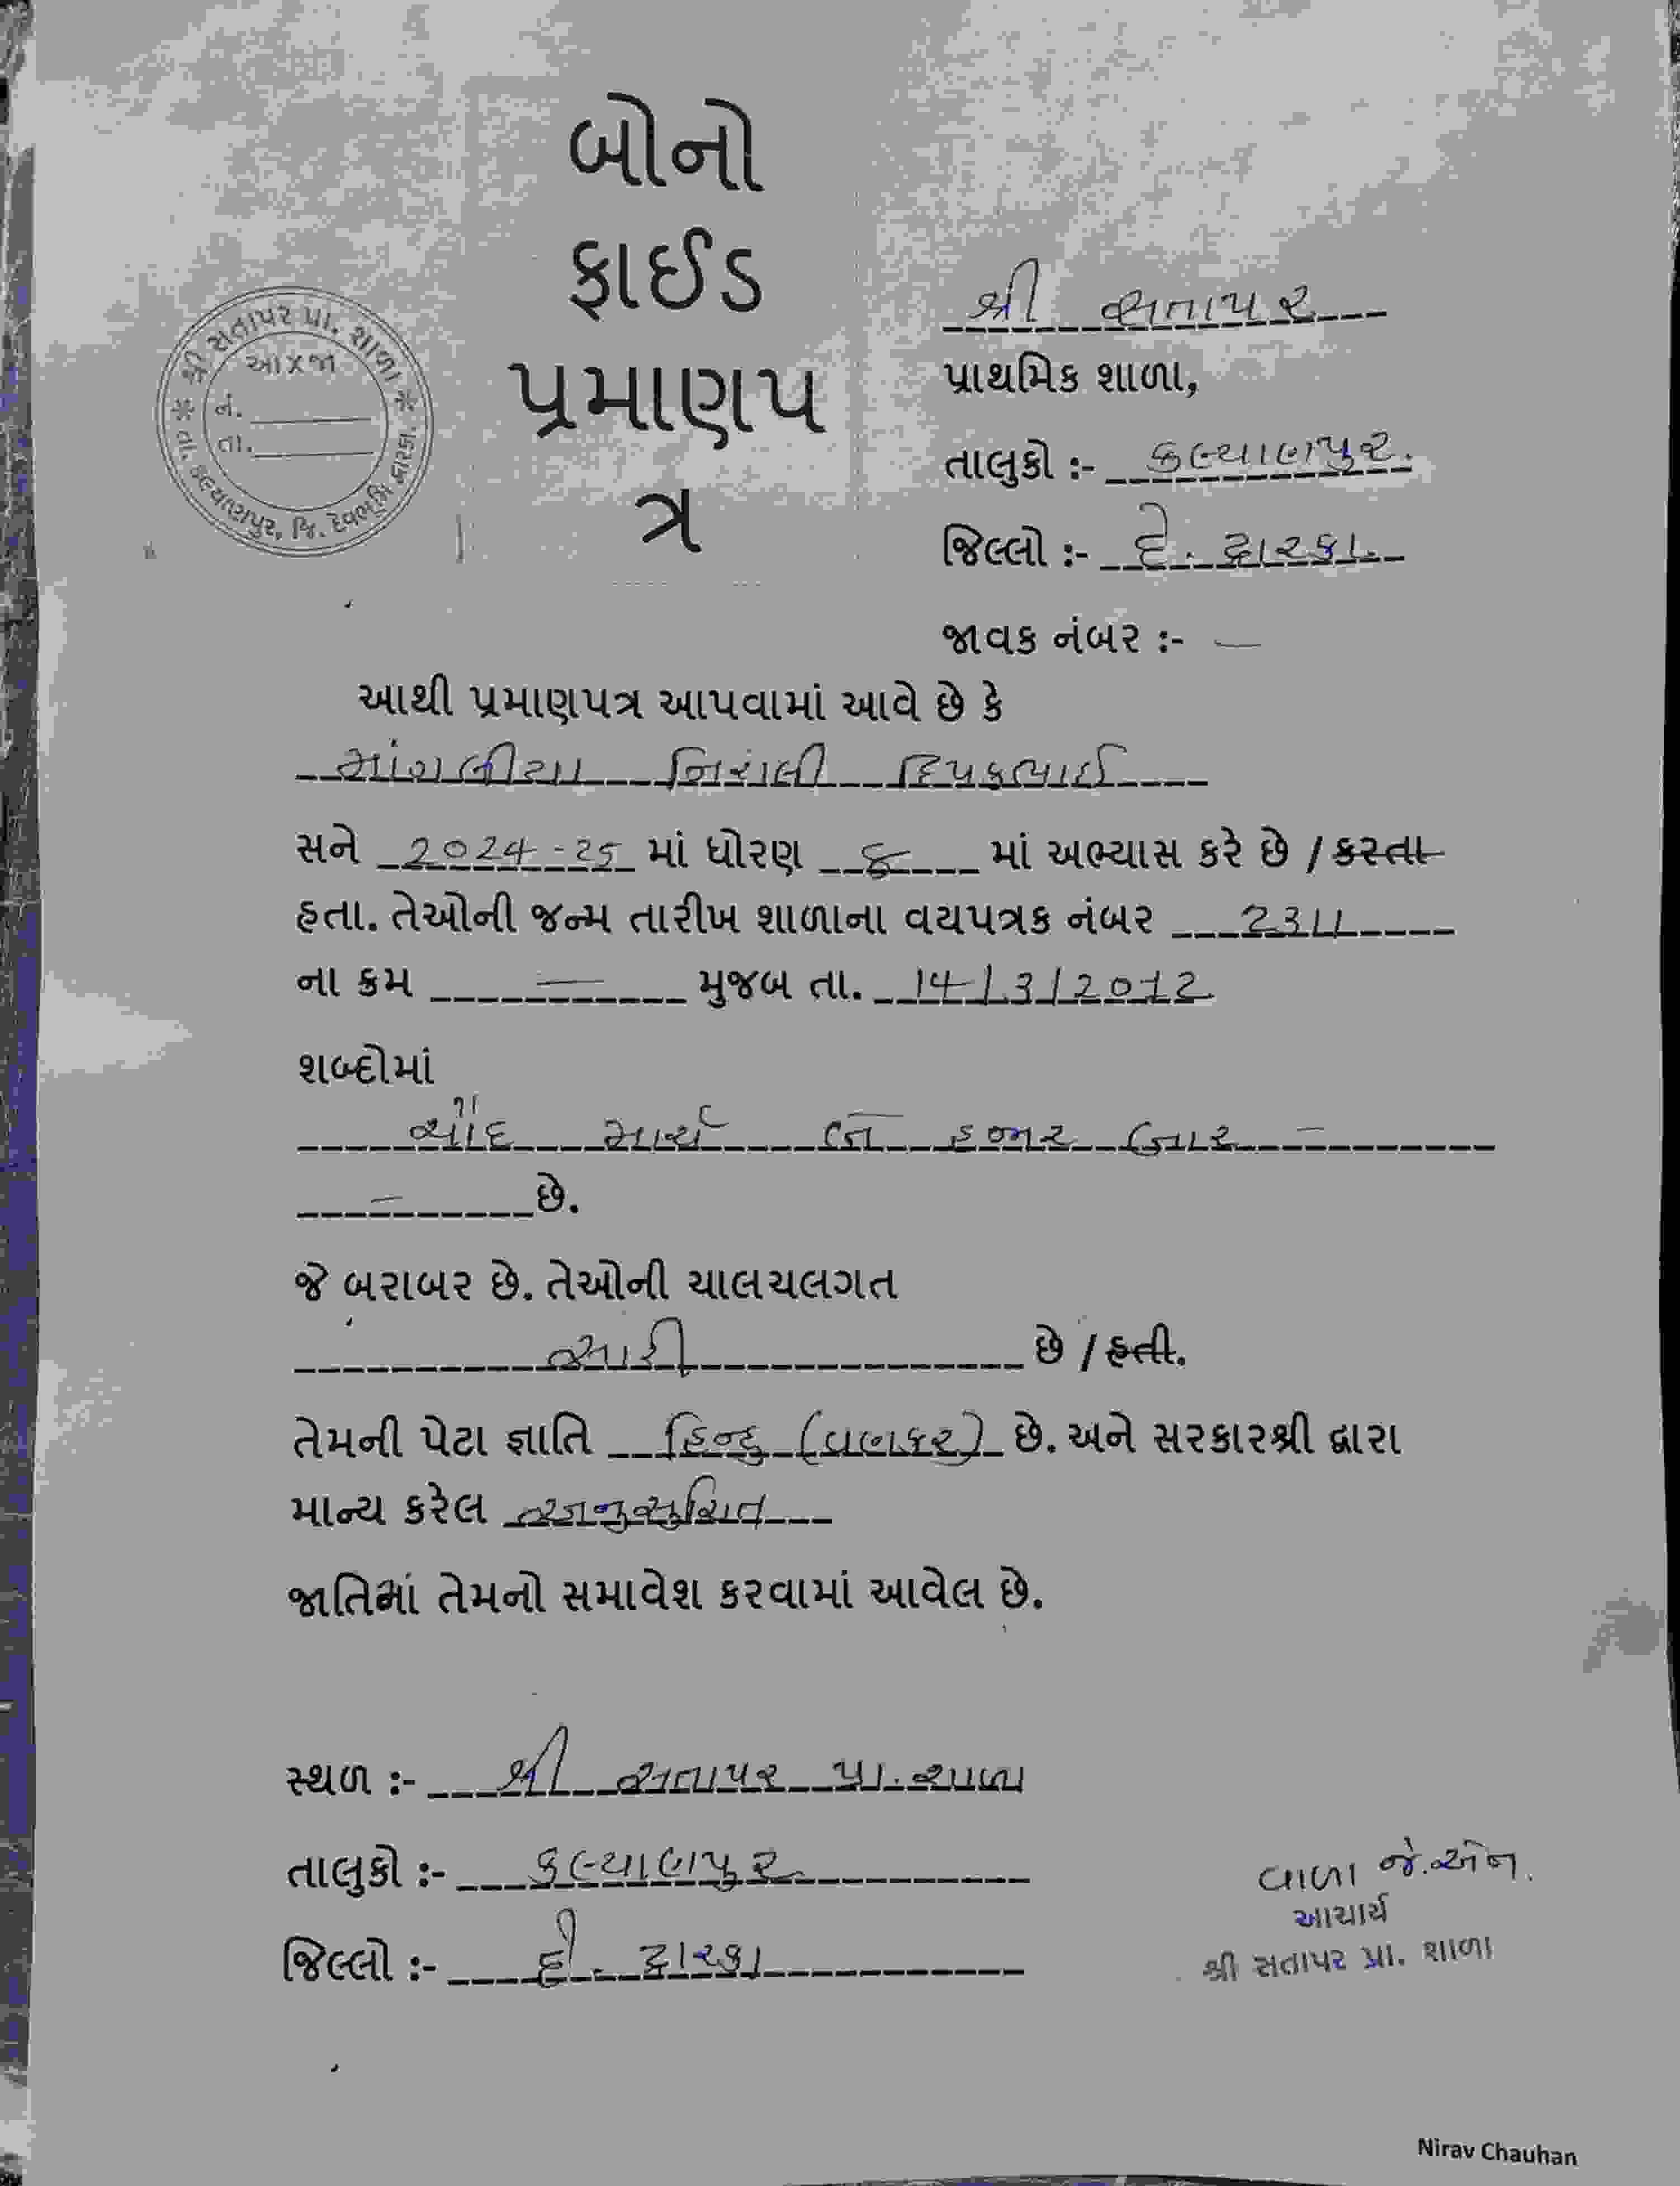 બોનો
ફાઈડ
પ્રમાણપ
ત્ર
શ્રી સતાપર પ્રા. શાળા
તા. કલ્યાણપુર, જિ. દેવભૂમિ દ્વારકા.
આ/જા
નં.
તા.
શ્રી સતાપર
પ્રાથમિક શાળા,
તાલુકો :- કલ્યાણપુર.
જિલ્લો :- દે. દ્વારકા.
જાવક નંબર :- —
આથી પ્રમાણપત્ર આપવામાં આવે છે કે
માંગલીયા નિરાલી દિપકભાઈ
સને 2024-25 માં ધોરણ ૬ માં અભ્યાસ કરે છે / કરતા
હતા. તેઓની જન્મ તારીખ શાળાના વયપત્રક નંબર 2311
ના ક્રમ — મુજબ તા. 14/3/2012
શબ્દોમાં
ચૌદ માર્ચ બે હજાર બાર –
– છે.
જે બરાબર છે. તેઓની ચાલચલગત
સારી છે / હતી.
તેમની પેટા જ્ઞાતિ હિન્દુ (વણકર) છે. અને સરકારશ્રી દ્વારા
માન્ય કરેલ અનુસુચિત
જાતિમાં તેમનો સમાવેશ કરવામાં આવેલ છે.
સ્થળ :- શ્રી સતાપર પ્રા. શાળા
તાલુકો :- કલ્યાણપુર
જિલ્લો :- દે. દ્વારકા
વાળા જે. એન.
આચાર્ય
શ્રી સતાપર પ્રા. શાળા
Nirav Chauhan